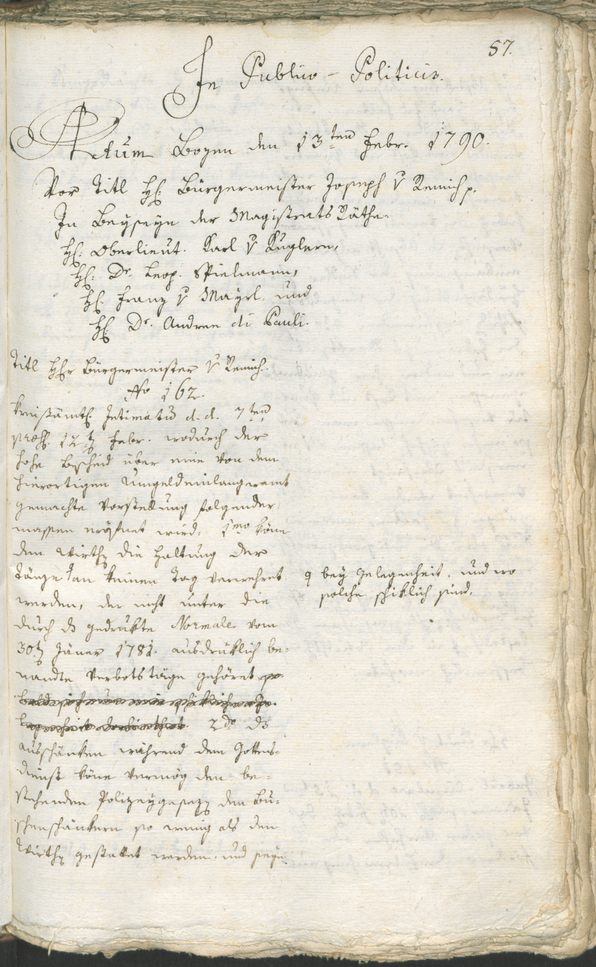 57.
In Publico-Politicis.
Actum Bozen den 13ten Febr. 1790.
Vor Titl H: Bürgermeister Joseph v Remich p.
In Beyseyn der Magistrats Räthe
H: Oberlieut. Karl v Kuglern,
H: Dr. Leop. Spielmann,
H: Franz v Mayrl, und
H: Dr. Andree di Pauli.
Titl Hhr Bürgermeister v Remich.
No 162.
Kreisämtl Intimatum d. d. 7ten
praes. 12ten Febr. wodurch der
hohe Bescheid über eine von dem
hierortigen Umgeldeinlangeramt
gemachte Vorstellung folgender
massen eröfnet wird, 1mo köne
den Wirthen die Haltung der
Tänze an keinen Tag verwehret
werden, der nicht unter die
durch ds gedrukte Normale vom
30ten Jäner 1781. ausdrüklich be-
nandte Verbotstäge gehöret
2do ds
ausschänken während dem Gottes-
dienst köne vermög den be-
stehenden Polizeygesezen den Bu-
schenschänkern so wenig als den
Wirthen gestattet werden, und seye
bey Gelegenheit, und wo
solche schiklich sind.